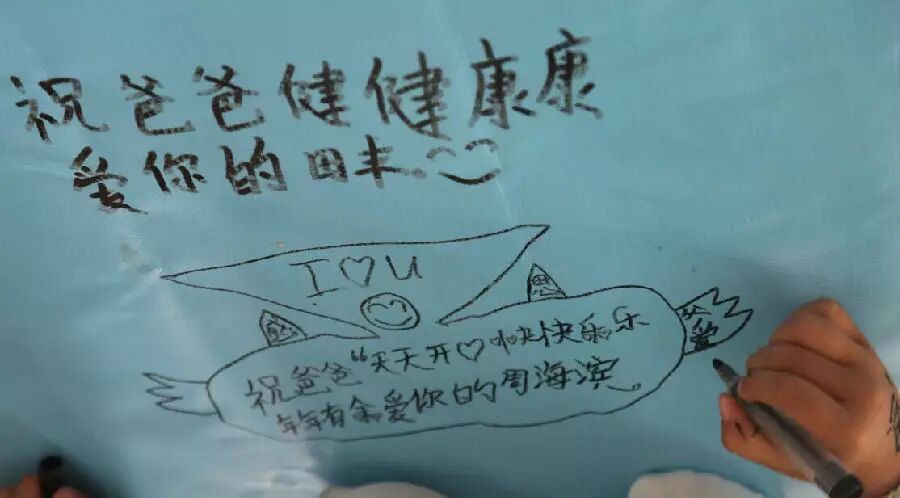 祝爸爸健健康康
爱你的田丰
I♡U
祝爸爸“天天开♡快快乐乐
年年有余爱你的周海滨
爱